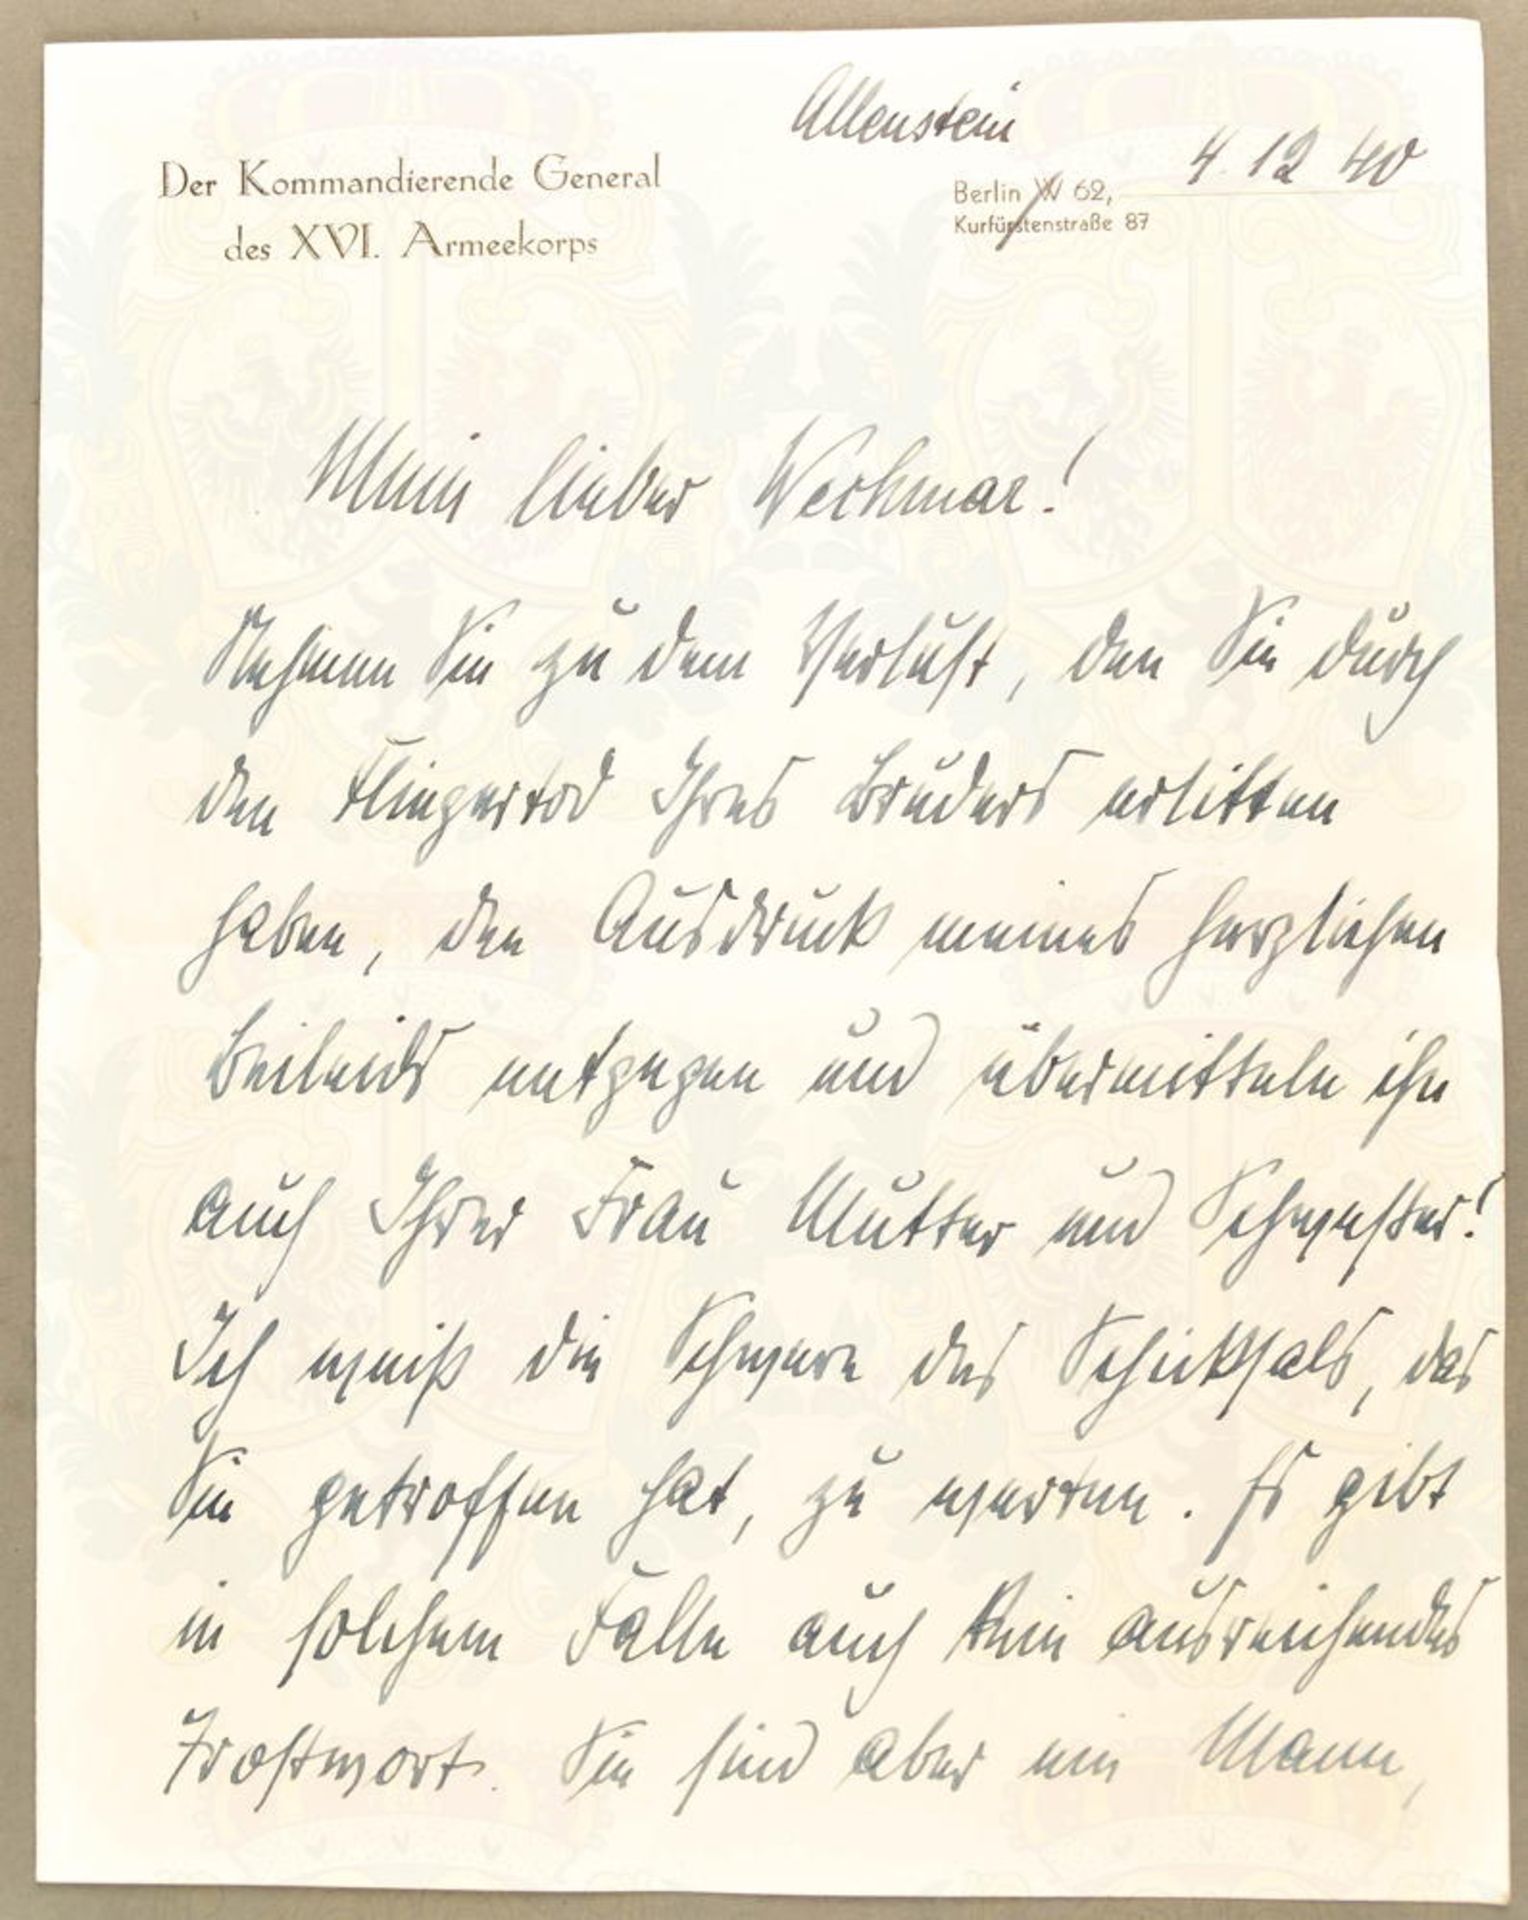 Allenstein
Der Kommandierende General
des XVI. Armeekorps
4. 12 40
Berlin W 62,
Kurfürstenstraße 87
Mein lieber Wechmar!
Nehmen Sie zu dem Verlust, den Sie durch
den Fliegertod Ihres Bruders erlitten
haben, den Ausdruck meines herzlichen
Beileids entgegen und übermitteln ihn
auch Ihrer Frau Mutter und Schwester!
Ich weiß die Schwere des Schicksals, das
Sie getroffen hat, zu werten. Es gibt
in solchem Falle auch kein ausreichendes
Trostwort. Sie sind aber ein Mann,